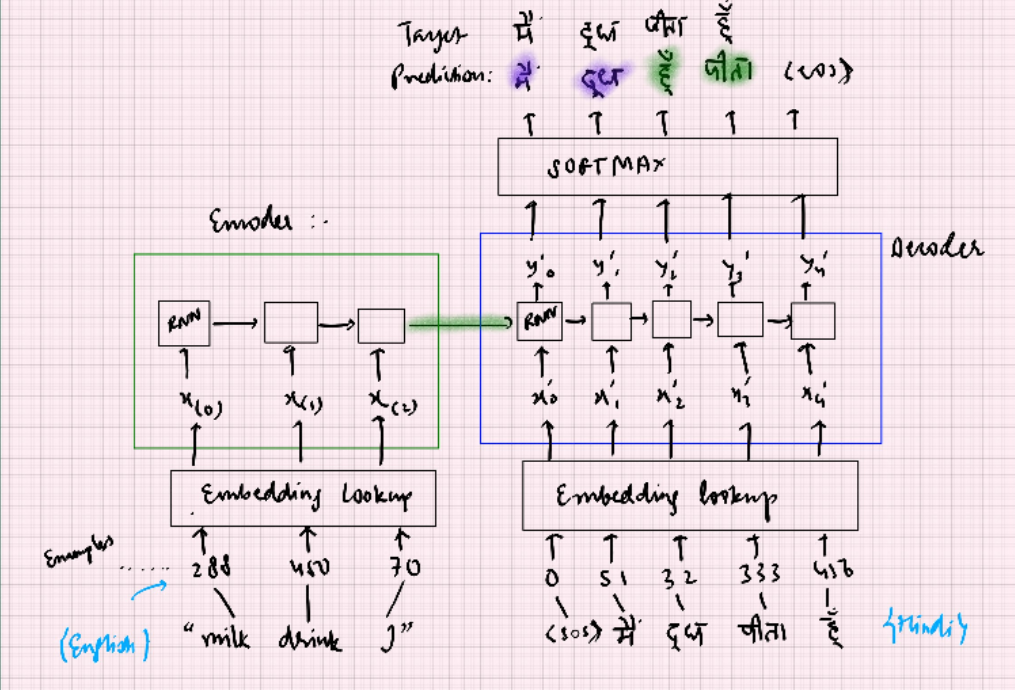 Target मैं दूध पीता हूँ
Prediction: मैं दूध पीता <eos>
SOFTMAX
Encoder :-
Decoder
y'₀ y'₁ y'₂ y'₃ y'₄
RNN RNN
x(0) x(1) x(2) x'₀ x'₁ x'₂ x'₃ x'₄
Embedding Lookup Embedding lookup
Examples ...... 288 450 70 0 51 32 333 456
(English) "milk drink I" <sos> मैं दूध पीता हूँ {Hindi}